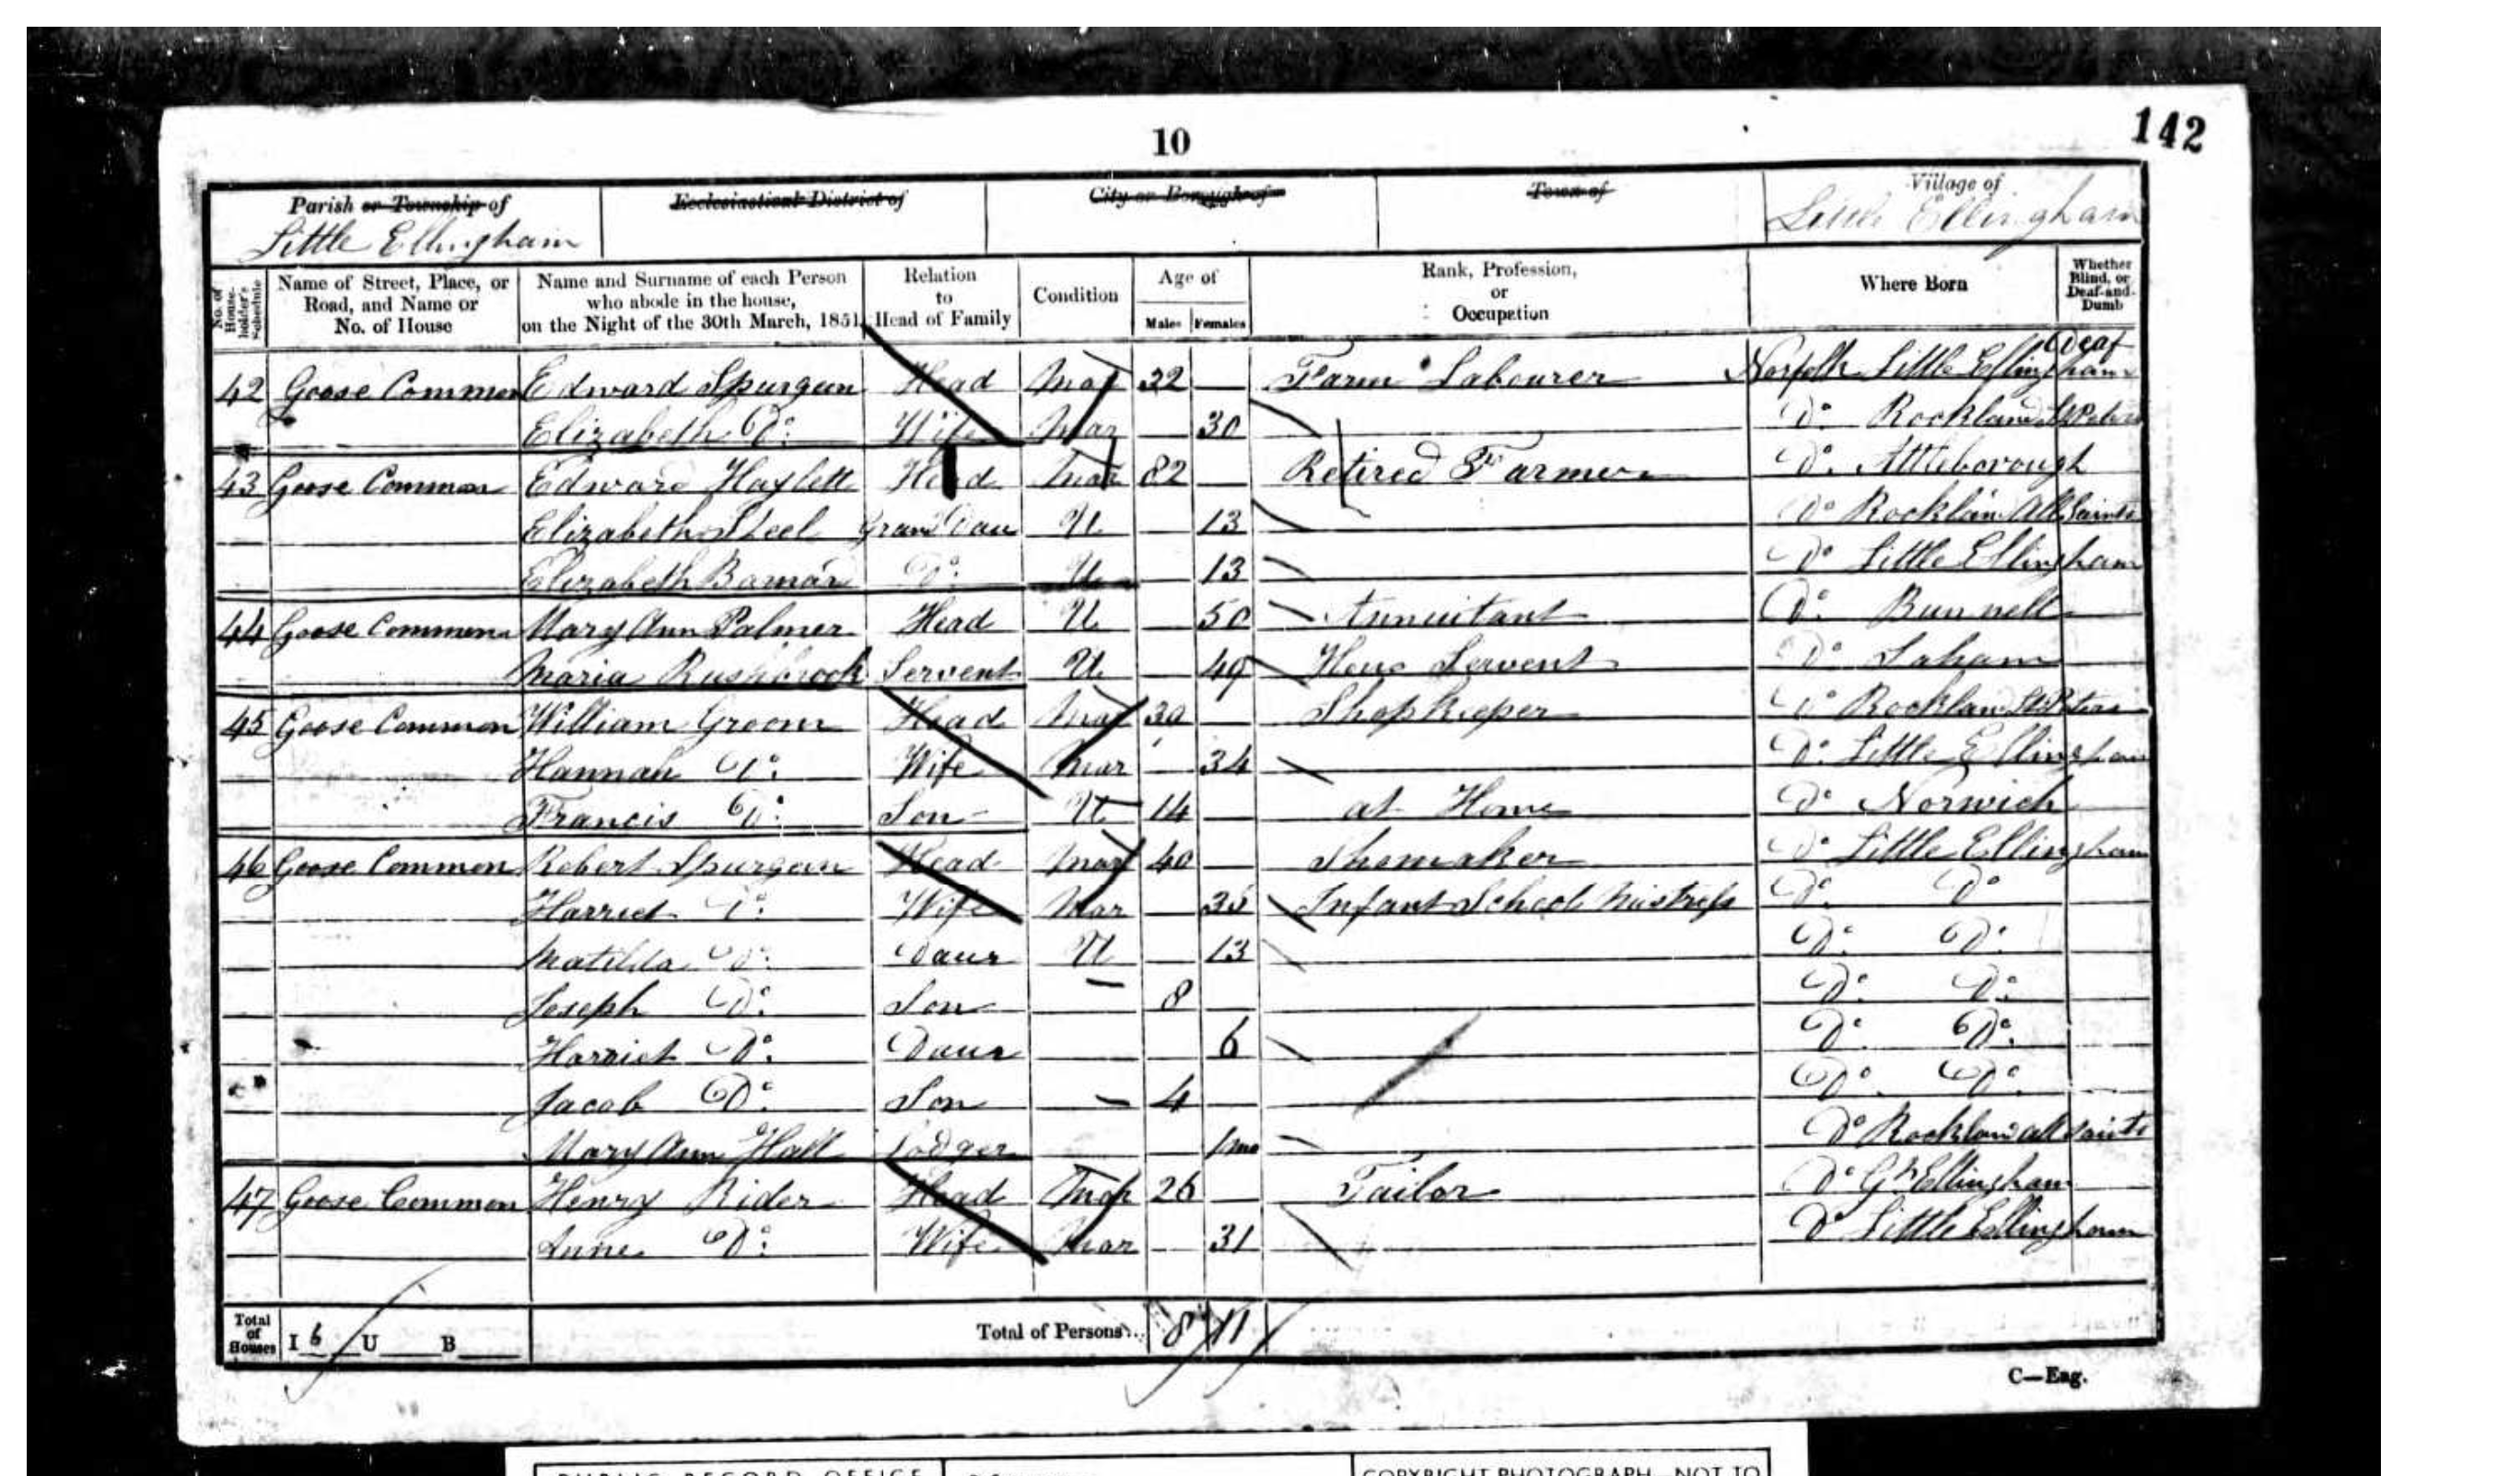 10
142
Parish or Township of
Little Ellingham
Ecclesiastical District of
City or Borough of
Town of
Village of
Little Ellingham
No. of House-holder's Schedule
Name of Street, Place, or Road, and Name or No. of House
Name and Surname of each Person who abode in the house, on the Night of the 30th March, 1851
Relation to Head of Family
Condition
Age of
Males Females
Rank, Profession, or Occupation
Where Born
Whether Blind, or Deaf-and-Dumb
Deaf
42 Goose Common Edward Spurgeon Head Mar 32 Farm Labourer Norfolk Little Ellingham
Elizabeth Do: Wife Mar 30 Do Rockland St Peters
43 Goose Common Edward Haylett Head Mar 82 Retired Farmer Do. Attleborough
Elizabeth Steel Grand Dau U 13 Do Rocklan All Saints
Elizabeth Do: U 13 Do Little Ellingham
44 Goose Common Mary Ann Palmer Head U 50 Annuitant Do: Bunnell
Maria Rushbrook Servent U 49 House Servent Do Saham
45 Goose Common William Groom Head Mar 30 Shopkeeper Do Rocklan St Peters
Hannah Do: Wife Mar 34 Do: Little Ellingham
Francis Do: Son U 14 at Home Do Norwich
46 Goose Common Robert Spurgeon Head Mar 40 Shomaker Do Little Ellingham
Harriet Do: Wife Mar 35 Infant School Mistress Do: Do
Matilda Do: Daur U 13 Do: Do:
Joseph Do: Son 8 Do: Do:
Harriet Do: Daur 6 Do: Do:
Jacob Do: Son 4 Do. Do:
Mary Ann Hall Lodger 1mo Do Rockland all saints
47 Goose Common Henry Rider Head Mar 26 Tailor Do Gt Ellingham
Anne Do: Wife Mar 31 Do Little Ellingham
Total of Houses I 6 U B
Total of Persons... 8 11
C—Eng.
PUBLIC RECORD OFFICE
COPYRIGHT PHOTOGRAPH—NOT TO